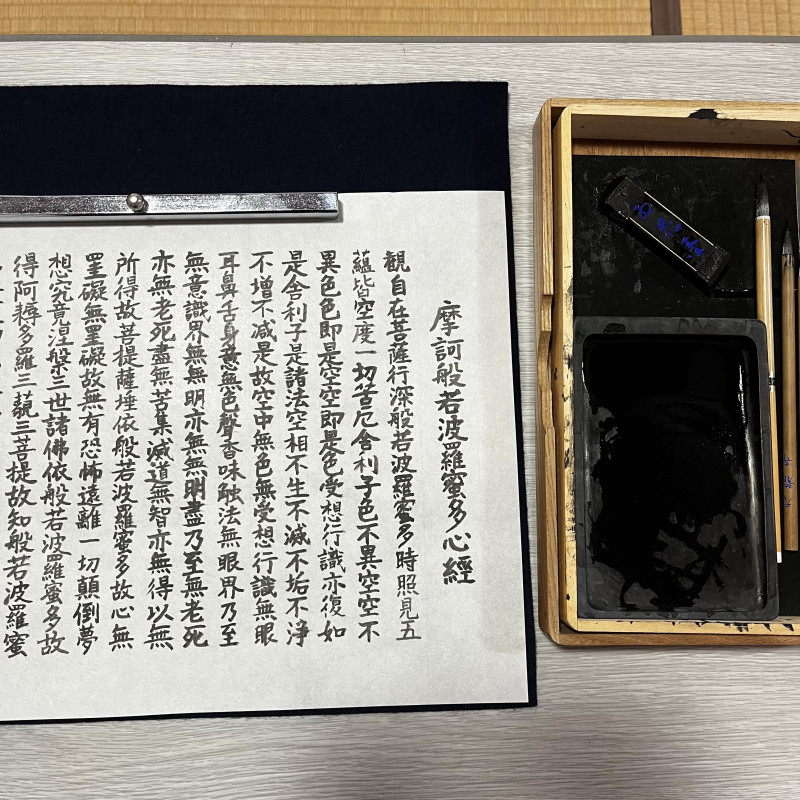 摩訶般若波羅蜜多心經
観自在菩薩行深般若波羅蜜多時照見五
蘊皆空度一切苦厄舎利子色不異空空不
異色色即是空空即是色受想行識亦復如
是舎利子是諸法空相不生不滅不垢不浄
不増不減是故空中無色無受想行識無眼
耳鼻舌身意無色聲香味触法無眼界乃至
無意識界無無明亦無無明盡乃至無老死
亦無老死盡無苦集滅道無智亦無得以無
所得故菩提薩埵依般若波羅蜜多故心無
罣礙無罣礙故無有恐怖遠離一切顛倒夢
想究竟涅槃三世諸佛依般若波羅蜜多故
得阿耨多羅三藐三菩提故知般若波羅蜜